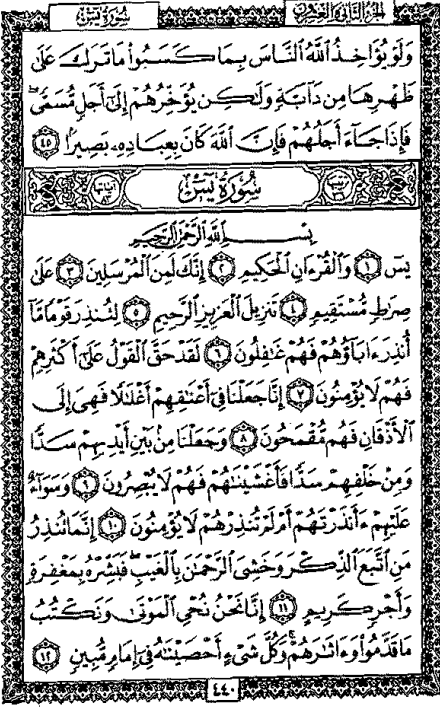 سُورَةُ يسٓ الجُزءُ الثَّانِي وَالعِشْرُونَ
وَلَوْ يُؤَاخِذُ ٱللَّهُ ٱلنَّاسَ بِمَا كَسَبُوا۟ مَا تَرَكَ عَلَىٰ
ظَهْرِهَا مِن دَآبَّةٍ وَلَٰكِن يُؤَخِّرُهُمْ إِلَىٰٓ أَجَلٍ مُّسَمًّى ۖ
فَإِذَا جَآءَ أَجَلُهُمْ فَإِنَّ ٱللَّهَ كَانَ بِعِبَادِهِۦ بَصِيرًۢا ٤٥
سُورَةُ يسٓ
بِسْمِ ٱللَّهِ ٱلرَّحْمَٰنِ ٱلرَّحِيمِ
يسٓ ١ وَٱلْقُرْءَانِ ٱلْحَكِيمِ ٢ إِنَّكَ لَمِنَ ٱلْمُرْسَلِينَ ٣ عَلَىٰ
صِرَٰطٍ مُّسْتَقِيمٍ ٤ تَنزِيلَ ٱلْعَزِيزِ ٱلرَّحِيمِ ٥ لِتُنذِرَ قَوْمًا مَّآ
أُنذِرَ ءَابَآؤُهُمْ فَهُمْ غَٰفِلُونَ ٦ لَقَدْ حَقَّ ٱلْقَوْلُ عَلَىٰٓ أَكْثَرِهِمْ
فَهُمْ لَا يُؤْمِنُونَ ٧ إِنَّا جَعَلْنَا فِىٓ أَعْنَٰقِهِمْ أَغْلَٰلًا فَهِىَ إِلَى
ٱلْأَذْقَانِ فَهُم مُّقْمَحُونَ ٨ وَجَعَلْنَا مِنۢ بَيْنِ أَيْدِيهِمْ سَدًّا
وَمِنْ خَلْفِهِمْ سَدًّا فَأَغْشَيْنَٰهُمْ فَهُمْ لَا يُبْصِرُونَ ٩ وَسَوَآءٌ
عَلَيْهِمْ ءَأَنذَرْتَهُمْ أَمْ لَمْ تُنذِرْهُمْ لَا يُؤْمِنُونَ ١٠ إِنَّمَا تُنذِرُ
مَنِ ٱتَّبَعَ ٱلذِّكْرَ وَخَشِىَ ٱلرَّحْمَٰنَ بِٱلْغَيْبِ ۖ فَبَشِّرْهُ بِمَغْفِرَةٍ
وَأَجْرٍ كَرِيمٍ ١١ إِنَّا نَحْنُ نُحْىِ ٱلْمَوْتَىٰ وَنَكْتُبُ
مَا قَدَّمُوا۟ وَءَاثَٰرَهُمْ ۚ وَكُلَّ شَىْءٍ أَحْصَيْنَٰهُ فِىٓ إِمَامٍ مُّبِينٍ ١٢
٤٤٠